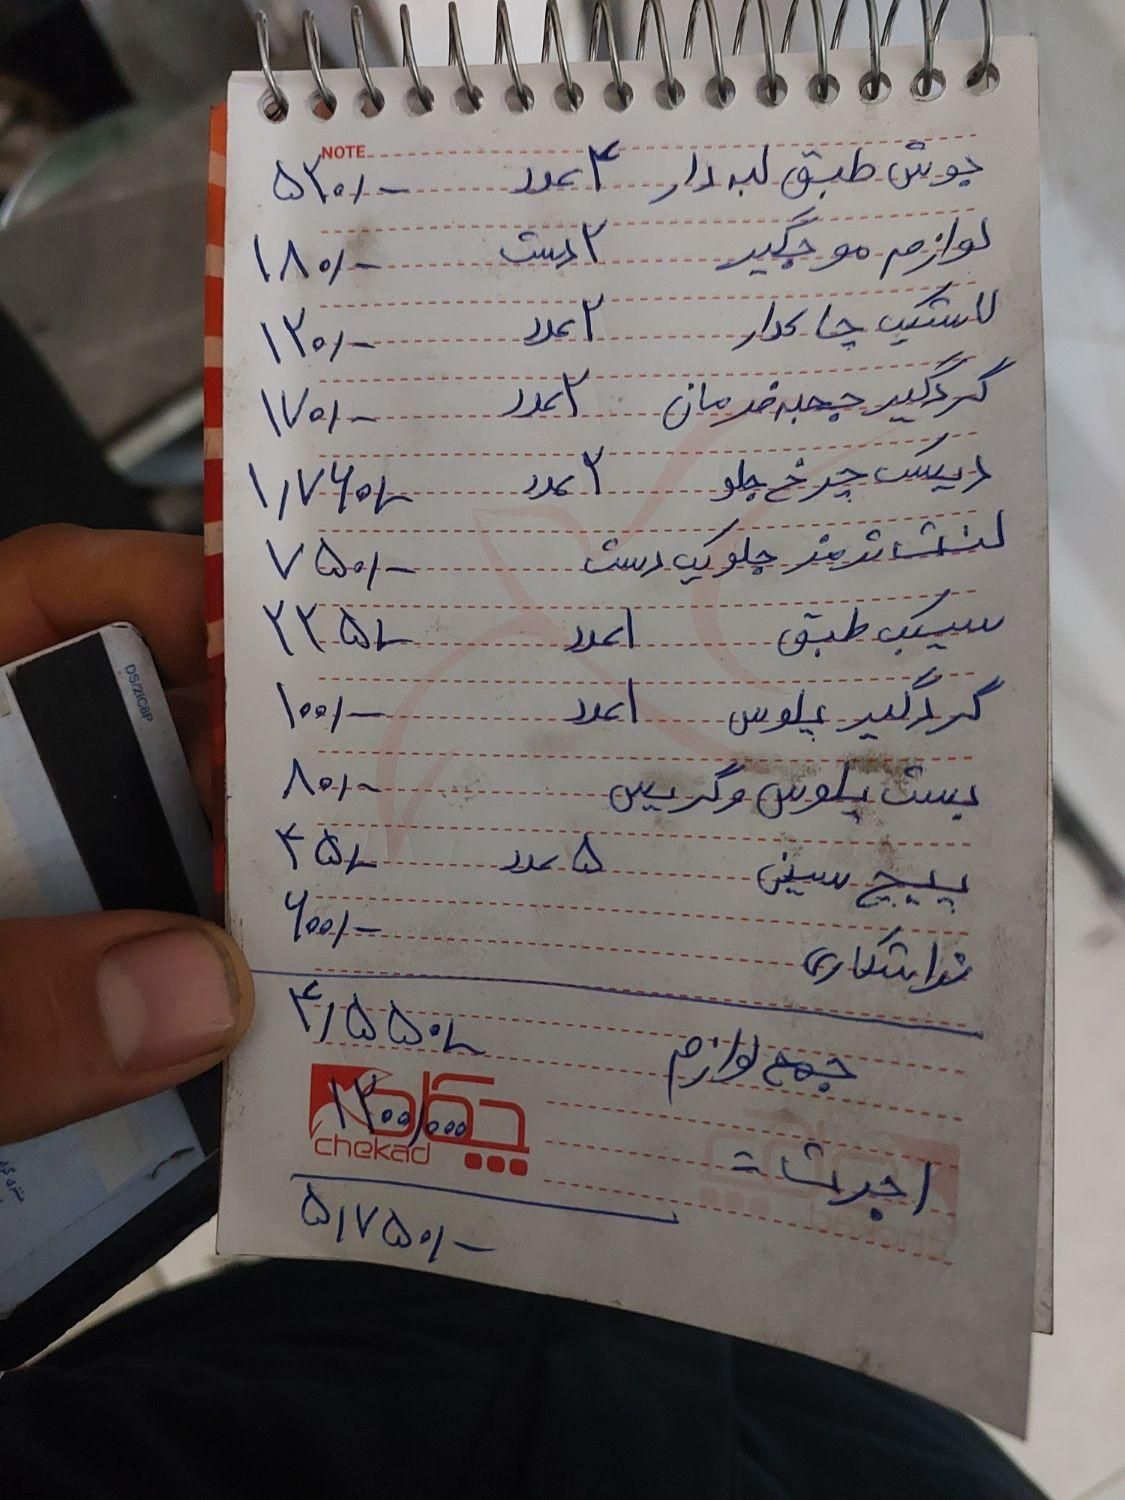 NOTE
بوش طبق لبه دار ۴ عدد ۵۲۰/-
لوازم موجگیر ۲ دست ۱۸۰/-
لاستیک چاکدار ۲ عدد ۱۲۰/-
گردگیر جعبه فرمان ۲ عدد ۱۷۰/-
دیسک چرخ جلو ۲ عدد ۱,۷۶۰/-
لنت ترمز جلو یک دست ۷۵۰/-
سیبک طبق ۱ عدد ۲۲۵/-
گردگیر پلوس ۱ عدد ۱۰۰/-
بست پلوس و گریس ۸۰/-
پیچ سینی ۵ عدد ۴۵/-
تراشکاری ۶۰۰/-
جمع لوازم ۴,۵۵۰/-
چکاد
chekad
اجرت = ۱۲۰۰/۰۰۰
۵,۷۵۰/-
DS/2IC8P